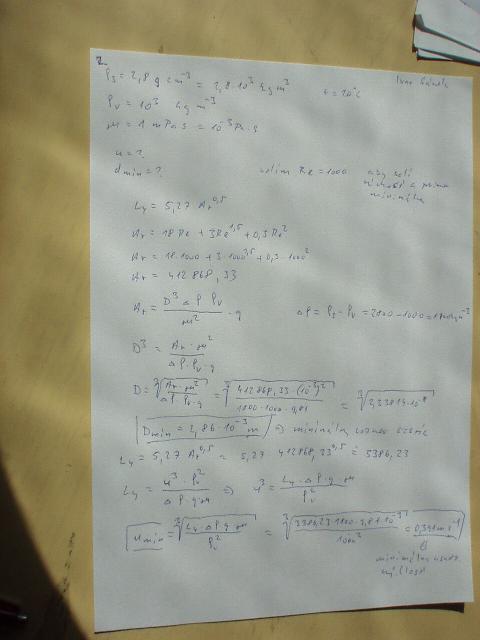 2.
ρs = 2,8 g cm⁻³ = 2,8·10³ kg m⁻³
t = 20°C
ρv = 10³ kg m⁻³
μ = 1 mPa s = 10⁻³ Pa·s
u = ?
dmin = ?
volím Re = 1000
aby
Ly = 5,27 Ar^0,5
Ar = 18 Re + 3Re^1,5 + 0,3Re²
Ar = 18·1000 + 3·1000^1,5 + 0,3·1000²
Ar = 412 868,33
Ar = D³ Δρ ρv / μ² · g
Δρ = ρs - ρv = 2800 - 1000 = 1800 kg m⁻³
D³ = Ar·μ² / Δρ·ρv·g
D = ∛(Ar·μ² / Δρ ρv·g) = ∛(412868,33·(10⁻³)² / 1800·1000·9,81) = ∛(2,33814·10⁻⁸)
Dmin = 2,86·10⁻³ m ⇒
Ly = 5,27 Ar^0,5 = 5,27 412868,33^0,5 = 3386,23
Ly = u³·ρv² / Δρ·g·μ ⇒ u³ = Ly·Δρ·g·μ / ρv²
umin = ∛(Ly·Δρ g μ / ρv²) = ∛(3386,23·1800·9,81·10⁻³ / 1000²) = 0,391 m s⁻¹